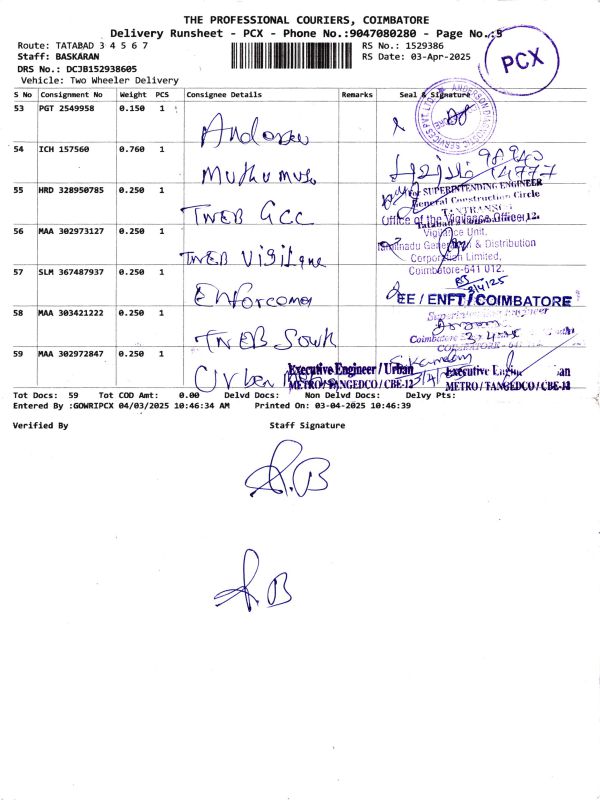 THE PROFESSIONAL COURIERS, COIMBATORE
Delivery Runsheet - PCX - Phone No.:9047080280 - Page No.:5
Route: TATABAD 3 4 5 6 7
RS No.: 1529386
Staff: BASKARAN
RS Date: 03-Apr-2025
PCX
DRS No.: DCJB152938605
Vehicle: Two Wheeler Delivery
S No Consignment No Weight PCS Consignee Details Remarks Seal & Signature
53 PGT 2549958 0.150 1
54 ICH 157560 0.760 1 Muthumuso
98940
14777
55 HRD 328950785 0.250 1 TNEB GCC
For SUPERINTENDING ENGINEER
General Construction Circle
TANTRANSCO
Office of the Vigilance Officer
56 MAA 302973127 0.250 1 TNEB Vigilance
Vigilance Unit,
Tamilnadu Generation & Distribution
Corporation Limited,
Coimbatore-641 012.
57 SLM 367487937 0.250 1
3/4/25
EE / ENFT / COIMBATORE
58 MAA 303421222 0.250 1 TNEB South
59 MAA 302972847 0.250 1 Urban
Executive Engineer / Urban
METRO / TANGEDCO / CBE-12
Executive Engineer / Urban
METRO / TANGEDCO / CBE-12
Tot Docs: 59 Tot COD Amt: 0.00 Delvd Docs: Non Delvd Docs: Delvy Pts:
Entered By :GOWRIPCX 04/03/2025 10:46:34 AM Printed On: 03-04-2025 10:46:39
Verified By Staff Signature
A.B
A.B